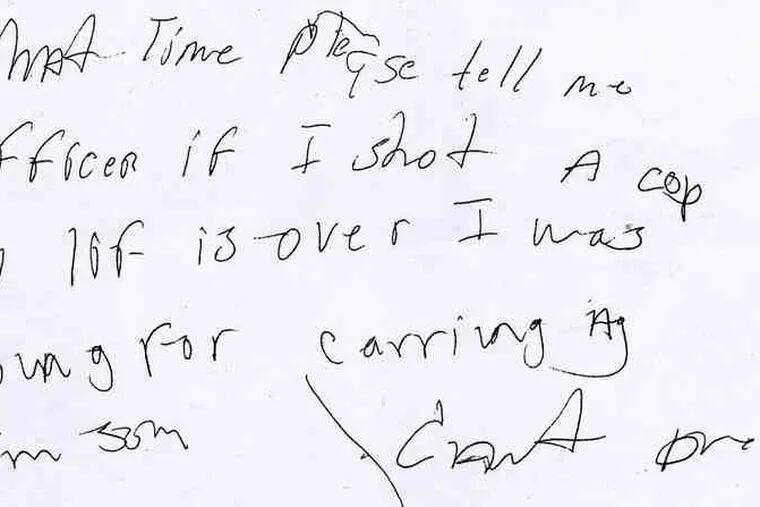 What Time please tell me
officer if I shot A cop
lif is over I was
for carring Ag
som Cant